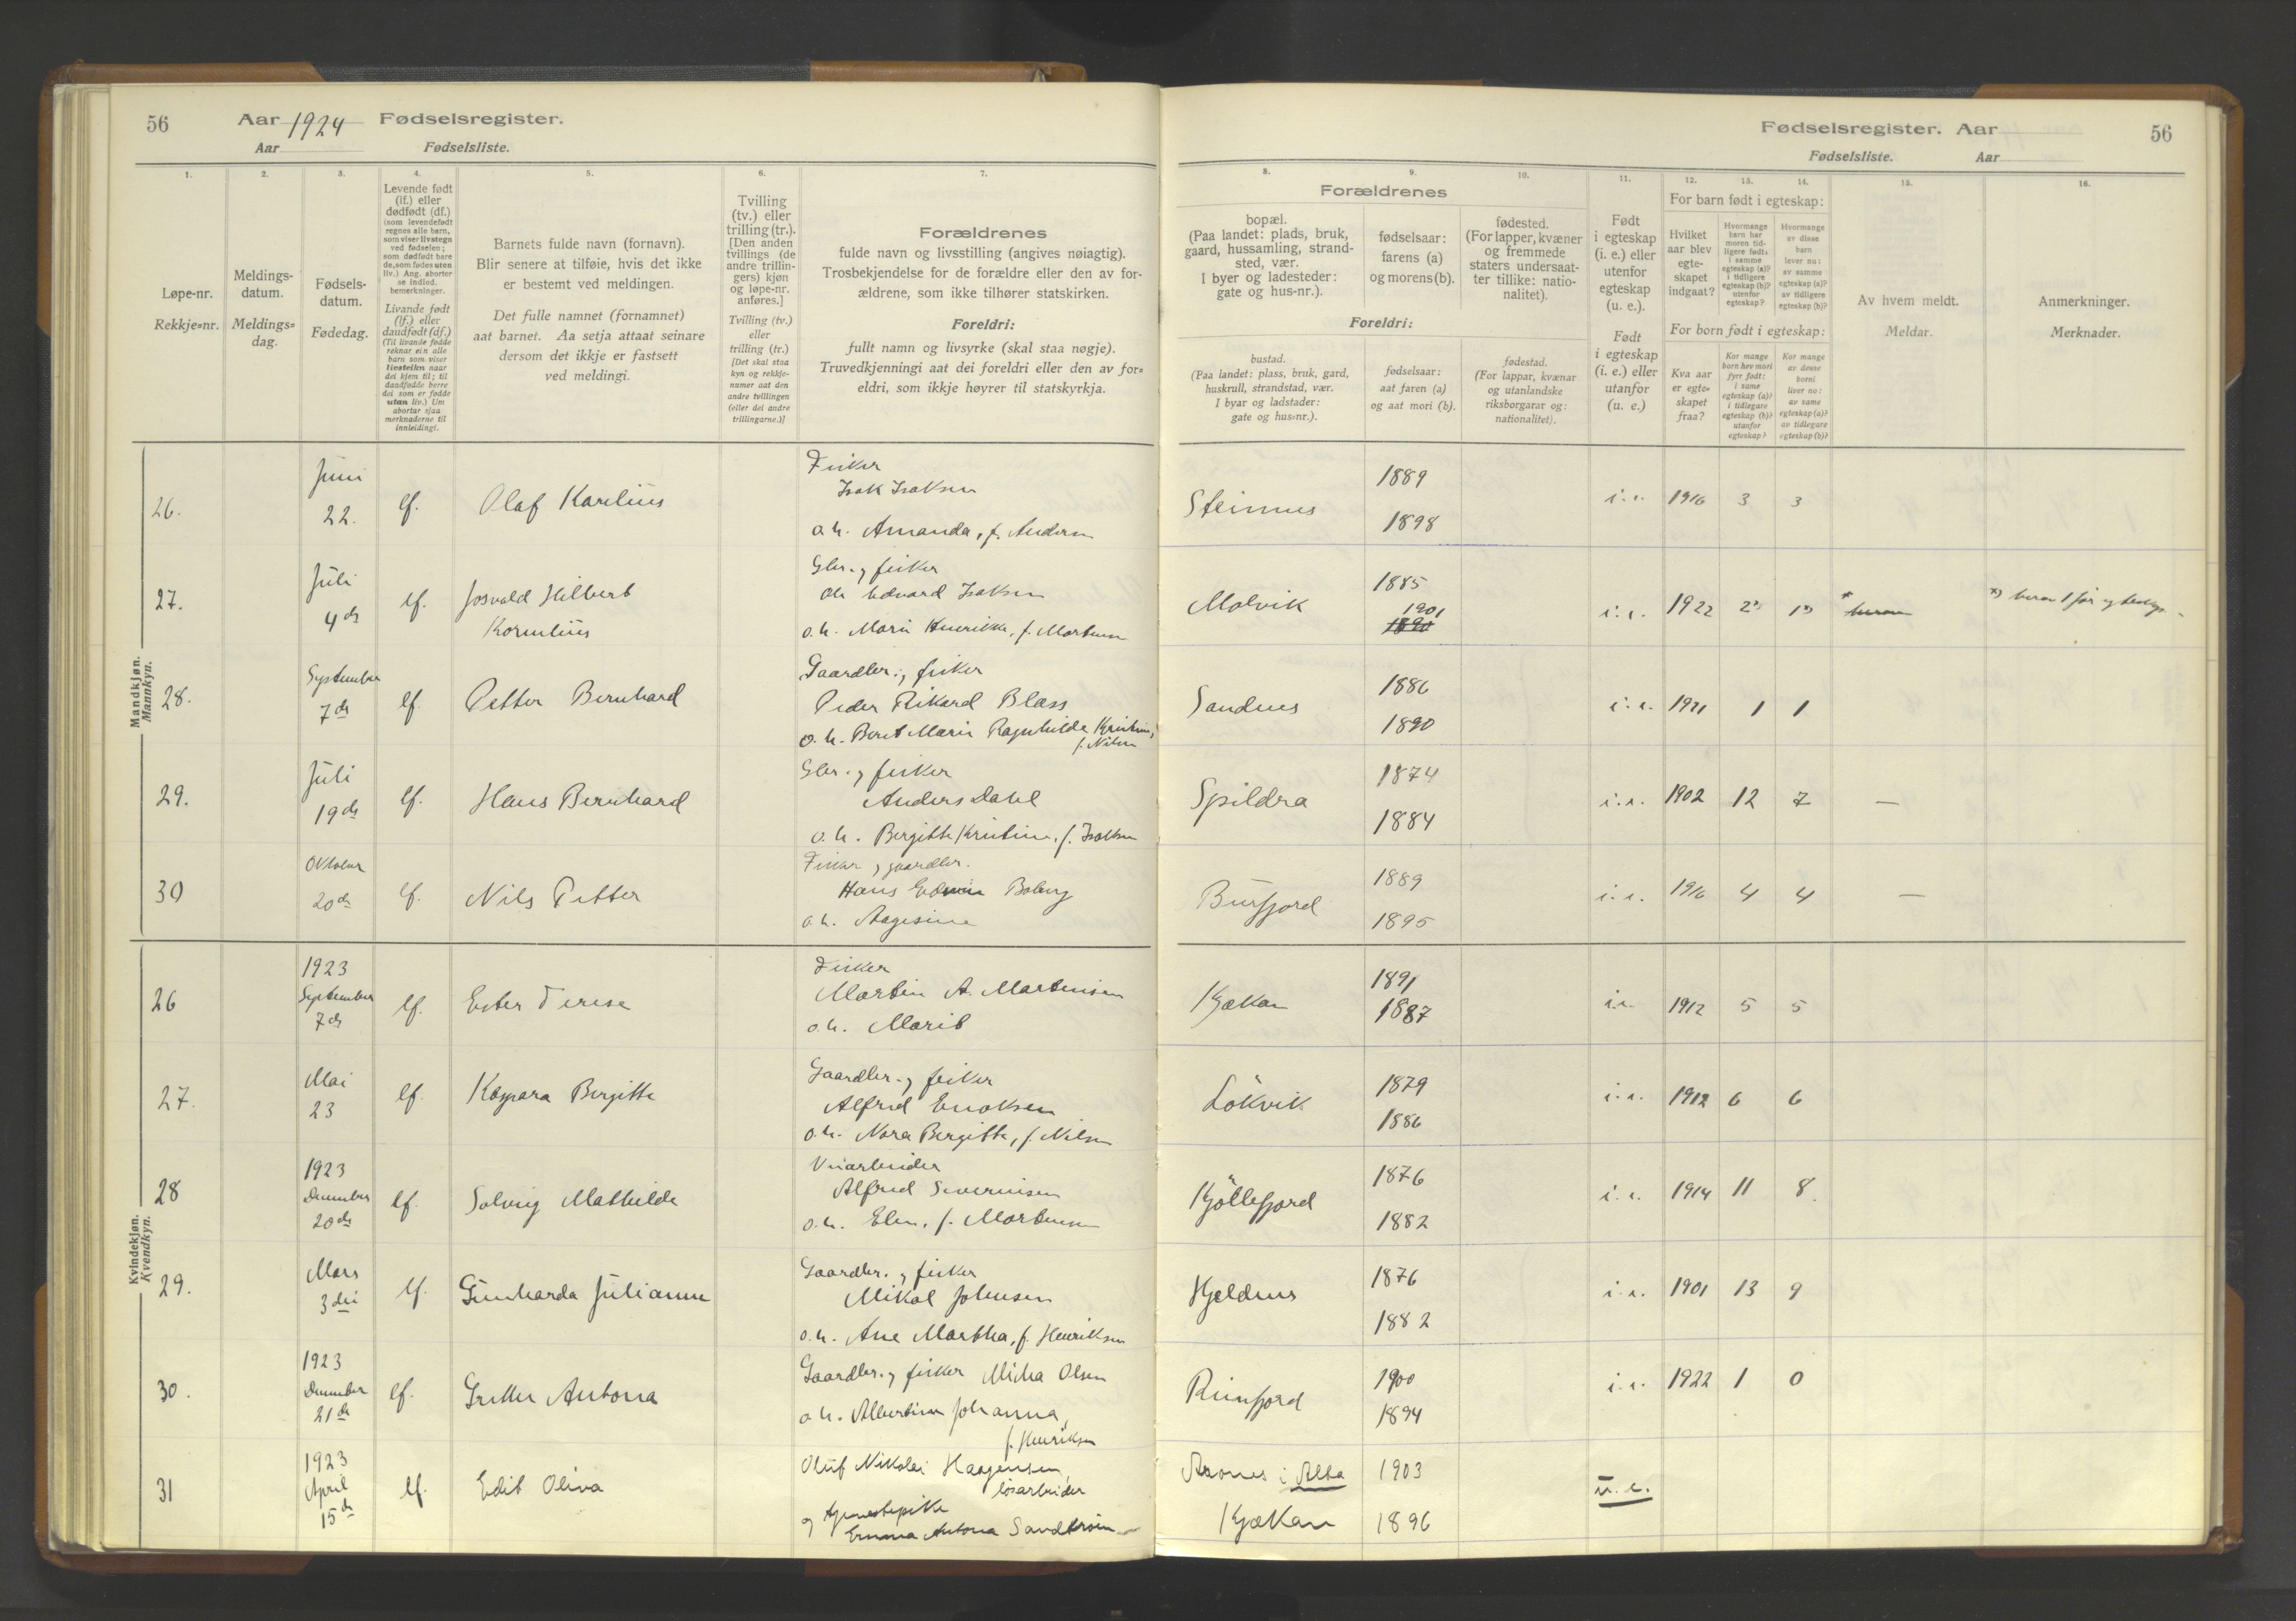 56
Aar 1924 Fødselsregister.
Aar Fødselsliste.
Fødselsregister. Aar
56
Fødselsliste. Aar
1.
Løpe-nr.
Rekkje=nr.
2.
Meldings-
datum.
Meldings=
dag.
3.
Fødsels-
datum.
Fødedag.
4.
Levende født
(lf.) eller
dødfødt (df.)
(som levendefødt
regnes alle barn,
som viser livstegn
ved fødselen;
som dødfødt bare
de, som fødes uten
liv.) Ang. aborter
se indled.
bemerkninger.
Livande født
(lf.) eller
daudfødt (df.)
(Til livande fødde
reknar ein alle
barn som viser
livsteikn naar
dei kjem til; til
daudfødde berre
dei som er fødde
utan liv.) Um
abortar sjaa
merknaderne til
innleidingi.
5.
Barnets fulde navn (fornavn).
Blir senere at tilføie, hvis det ikke
er bestemt ved meldingen.
Det fulle namnet (fornamnet)
aat barnet. Aa setja attaat seinare
dersom det ikkje er fastsett
ved meldingi.
6.
Tvilling
(tv.) eller
trilling (tr.).
[Den anden
tvillings (de
andre trillin-
gers) kjøn
og løpe-nr.
anføres.]
Tvilling (tv.)
eller
trilling (tr.)
[Det skal staa
kyn og rekkje-
numer aat den
andre tvillingen
(eller dei andre
trillingarne.)]
7.
Forældrenes
fulde navn og livsstilling (angives nøiagtig).
Trosbekjendelse for de forældre eller den av for-
ældrene, som ikke tilhører statskirken.
Foreldri:
fullt namn og livsyrke (skal staa nøgje).
Truvedkjenningi aat dei foreldri eller den av for=
eldri, som ikkje høyrer til statskyrkja.
8.
9.
10.
Forældrenes
bopæl.
(Paa landet: plads, bruk,
gaard, hussamling, strand-
sted, vær.
I byer og ladesteder:
gate og hus-nr.).
fødselsaar:
farens (a)
og morens (b).
fødested.
(For lapper, kvæner
og fremmede
staters undersaat-
ter tillike: natio-
nalitet).
Foreldri:
bustad.
(Paa landet: plass, bruk, gard,
huskrull, strandstad, vær.
I byar og ladstader:
gate og hus=nr.).
fødselsaar:
aat faren (a)
og aat mori (b).
fødestad.
(For lappar, kvænar
og utanlandske
riksborgarar og:
nationalitet).
11.
Født
i egteskap
(i. e.) eller
utenfor
egteskap
(u. e.).
Født
i egteskap
(i. e.) eller
utanfor
(u. e.)
12.
13.
14.
For barn født i egteskap:
Hvilket
aar blev
egte-
skapet
indgaat?
Hvormange
barn har
moren tid-
ligere født:
i samme
egteskap (a)?
i tidligere
egteskap (b)?
utenfor
egteskap?
Hvormange
av disse
barn
lever nu:
av samme
egteskap (a)?
av tidligere
egteskap (b)?
For born født i egteskap:
Kva aar
er egte=
skapet
fraa?
Kor mange
born hev mori
fyrr født:
i same
egteskap (a)?
i tidlegare
egteskap (b)?
utanfor
egteskap?
Kor mange
av desse
borni
liver no:
av same
egteskap (a)?
av tidlegare
egteskap (b)?
15.
Av hvem meldt.
Meldar.
16.
Anmerkninger.
Merknader.
Mandkjøn.
Mannkyn.
26. Juni 22. lf. Olaf Karelius
Fisker
Isak Isaksen
o. h. Amanda, f. Andersen
Steinnes 1889 1898 i. e. 1916 3 3
27. Juli 4de lf. Josvald Hilbert
Kornelius
Gbr. og fisker
Ole Edvard Isaksen
o. h. Marie Henrikke, f. Mortensen
Malvik 1885 1901 1890 i. e. 1922 2*) 1*)
28. September 7de lf. Petter Bernhard
Gaardbr. og fisker
Peder Rikard Blass
o. h. Berit Marie Ragnhilde Kristine,
f. Nilsen
Sandnes 1886 1890 i. e. 1921 1 1
29. Juli 19de lf. Hans Bernhard
Gbr. og fisker
Anders Dahl
o. h. Bergitte Kristine, f. Isaksen
Spildra 1874 1884 i. e. 1902 12 7 —
30 Oktober 20de lf. Nils Petter
Fisker og gaardbr.
Hans Edvin Boberg
o. h. Aagesine
Burfjord 1889 1895 i. e. 1916 4 4 —
Kvindekjøn.
Kvendkyn.
26 1923 September 7de lf. Ester Terese
Fisker
Martin A. Martinsen
o. h. Marit
Kjækan 1891 1887 i. e. 1912 5 5
27. Mai 23 lf. Kaspara Bergitte
Gaardbr. og fisker
Alfred Enoksen
o. h. Nora Bergitte, f. Nilsen
Lökvik 1879 1886 i. e. 1912 6 6
28 1923 December 20de lf. Solveig Mathilde
Veiarbeider
Alfred Severinsen
o. h. Elen, f. Mortensen
Kjöllefjord 1876 1882 i. e. 1914 11 8.
29. Mars 3die lf. Gunharda Julianne
Gaardbr. og fisker
Mikal Johnsen
o. h. Ane Martha, f. Henriksen
Hjeldnes 1876 1882 i. e. 1901 13 9
30. 1923 December 21de lf. Grethe Antona
Gaardbr. og fisker Micha Olsen
o. h. Albertine Johanna,
f. Henriksen
Reinfjord 1900 1894 i. e. 1922 1 0
31 1923 April 15de lf. Edit Oliva
Oluf Nikolai Haagensen,
løsarbeider
og tjenestepike
Emma Antona Sandstrøm
Aarones i Alta 1903 u. e.
Kjækan 1896